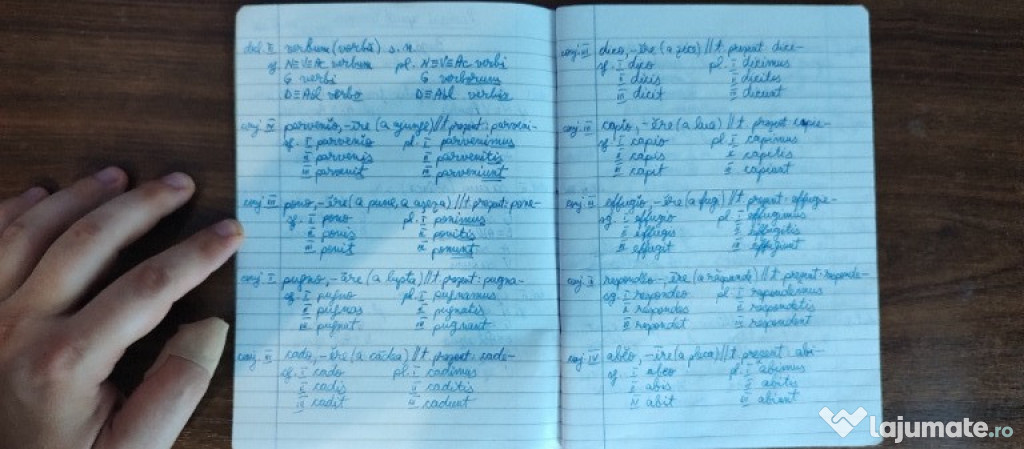 decl. II verbum (verbi) s. n.
sg. N≡V≡Ac verbum pl. N≡V≡Ac verbi
G verbi G verborum
D≡Abl verbo D≡Abl verbis
conj. IV parvenio, -ire (a ajunge) // t. prezent: parveni-
sg. I parvenio pl. I parvenimus
II parvenis II parvenitis
III parvenit III parveniunt
conj. III pono, -ĕre (a pune, a așeza) // t. prezent: pone-
sg. I pono pl. I ponimus
II ponis II ponitis
III ponit III ponunt
conj. I pugno, -are (a lupta) // t. prezent: pugna-
sg. I pugno pl. I pugnamus
II pugnas II pugnatis
III pugnat III pugnant
conj. III cado, -ĕre (a cădea) // t. prezent: cade-
sg. I cado pl. I cadimus
II cadis II caditis
III cadit III cadunt
conj. III dico, -ĕre (a zice) // t. prezent: dice-
sg. I dico pl. I dicimus
II dicis II dicitis
III dicit III dicunt
conj. III capio, -ĕre (a lua) // t. prezent capie-
sg. I capio pl. I capimus
II capis II capitis
III capit III capiunt
conj. III effugio, -ĕre (a fugi) // t. prezent: effugie-
sg. I effugio pl. I effugimus
II effugis II effugitis
III effugit III effugiunt
conj. II respondeo, -ēre (a răspunde) // t. prezent: responde-
sg. I respondeo pl. I respondemus
II respondes II respondetis
III respondet III respondent
conj. IV abeo, -ire (a pleca) // t. prezent: abi-
sg. I abeo pl. I abimus
II abis II abitis
III abit III abiunt
lajumate.ro